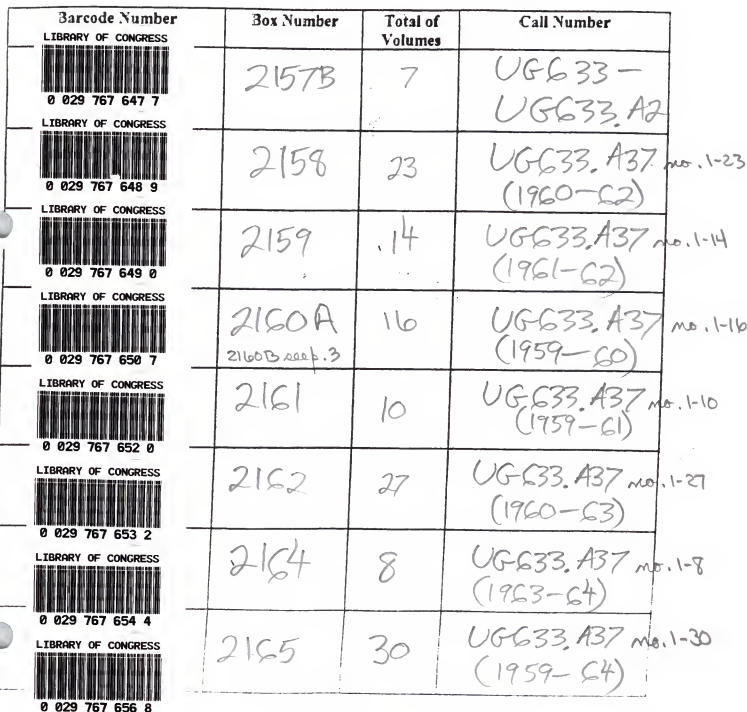 Barcode Number Box Number Total of Volumes Call Number
LIBRARY OF CONGRESS
0 029 767 647 7
2157B 7 UG633 –
UG633.A2
LIBRARY OF CONGRESS
0 029 767 648 9
2158 23 UG633.A37 no. 1-23
(1960–62)
LIBRARY OF CONGRESS
0 029 767 649 0
2159 .14 UG633.A37 no. 1-14
(1961–62)
LIBRARY OF CONGRESS
0 029 767 650 7
2160A 16 UG633.A37 no. 1-16
2160B see p. 3 (1959–60)
LIBRARY OF CONGRESS
0 029 767 652 0
2161 10 UG633.A37 no. 1-10
(1959–61)
LIBRARY OF CONGRESS
0 029 767 653 2
2162 27 UG633.A37 no. 1-27
(1960–63)
LIBRARY OF CONGRESS
0 029 767 654 4
2164 8 UG633.A37 no. 1-8
(1963–64)
LIBRARY OF CONGRESS
0 029 767 656 8
2165 30 UG633.A37 no. 1-30
(1959–64)